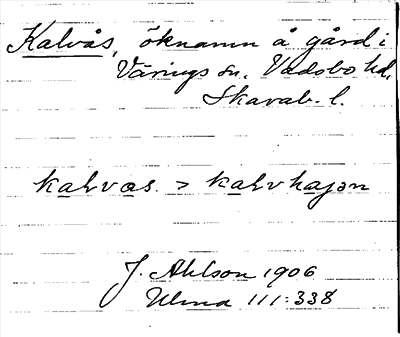 Kalvås, öknamn å gård i
Värings sn. Vadsbo hd.
Skarab. l.
kalvas. > kalvhajən
J. Ahlson 1906
Ulma 111:338